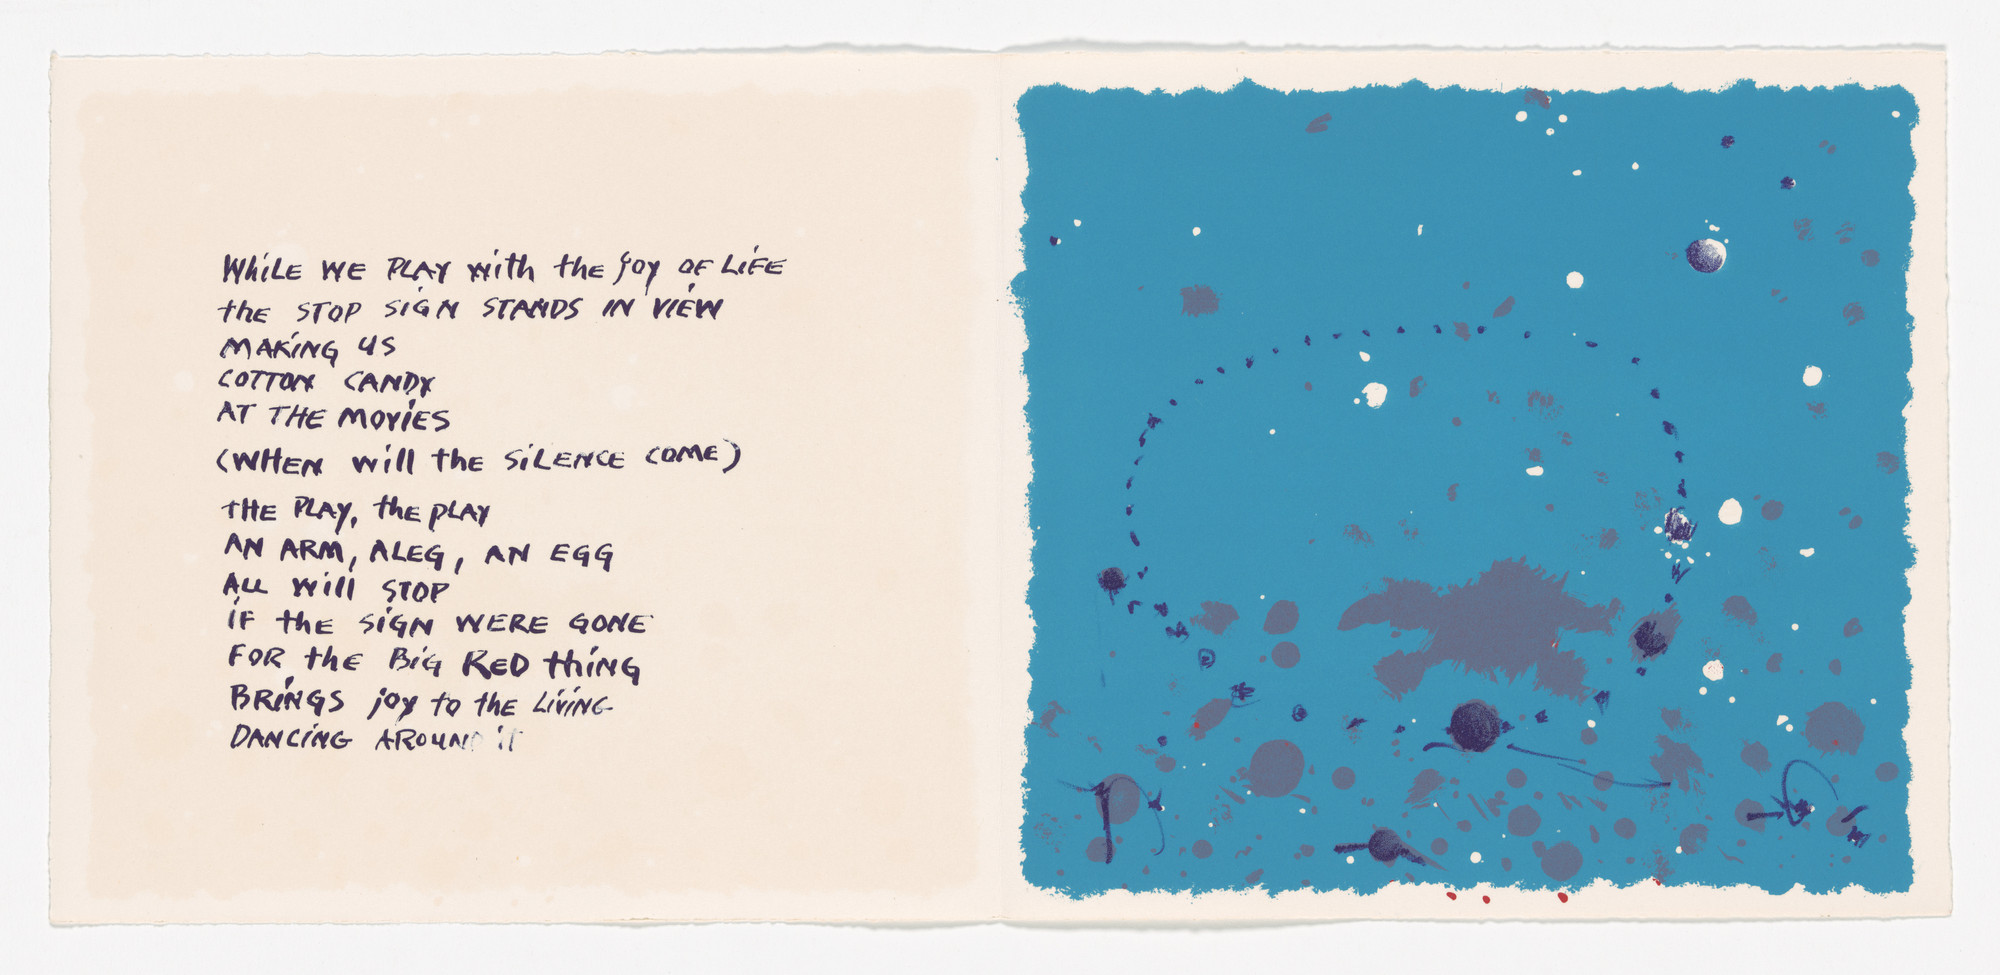 WHiLE WE PLAY with the joy OF LiFE
the STOP SiGN STANDS IN ViEW
MAKiNG US
COTTON CANDY
AT THE MOViES
(WHEN will the SiLENCE COME)
THE PLAY, the pLAY
AN ARM, A LEG, AN EGG
ALL will STOP
iF the SiGN WERE GONE
FOR the BiG RED thiNG
BRiNGS joy to the LiViNG
DANCiNG AROUND iT